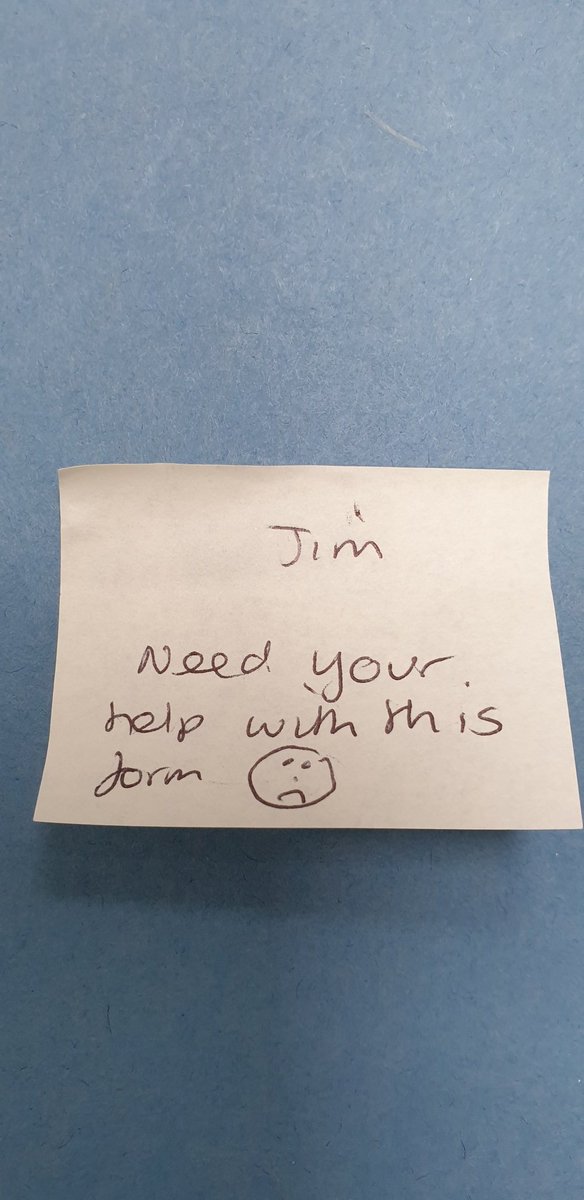 Jim
Need your
help with this
form